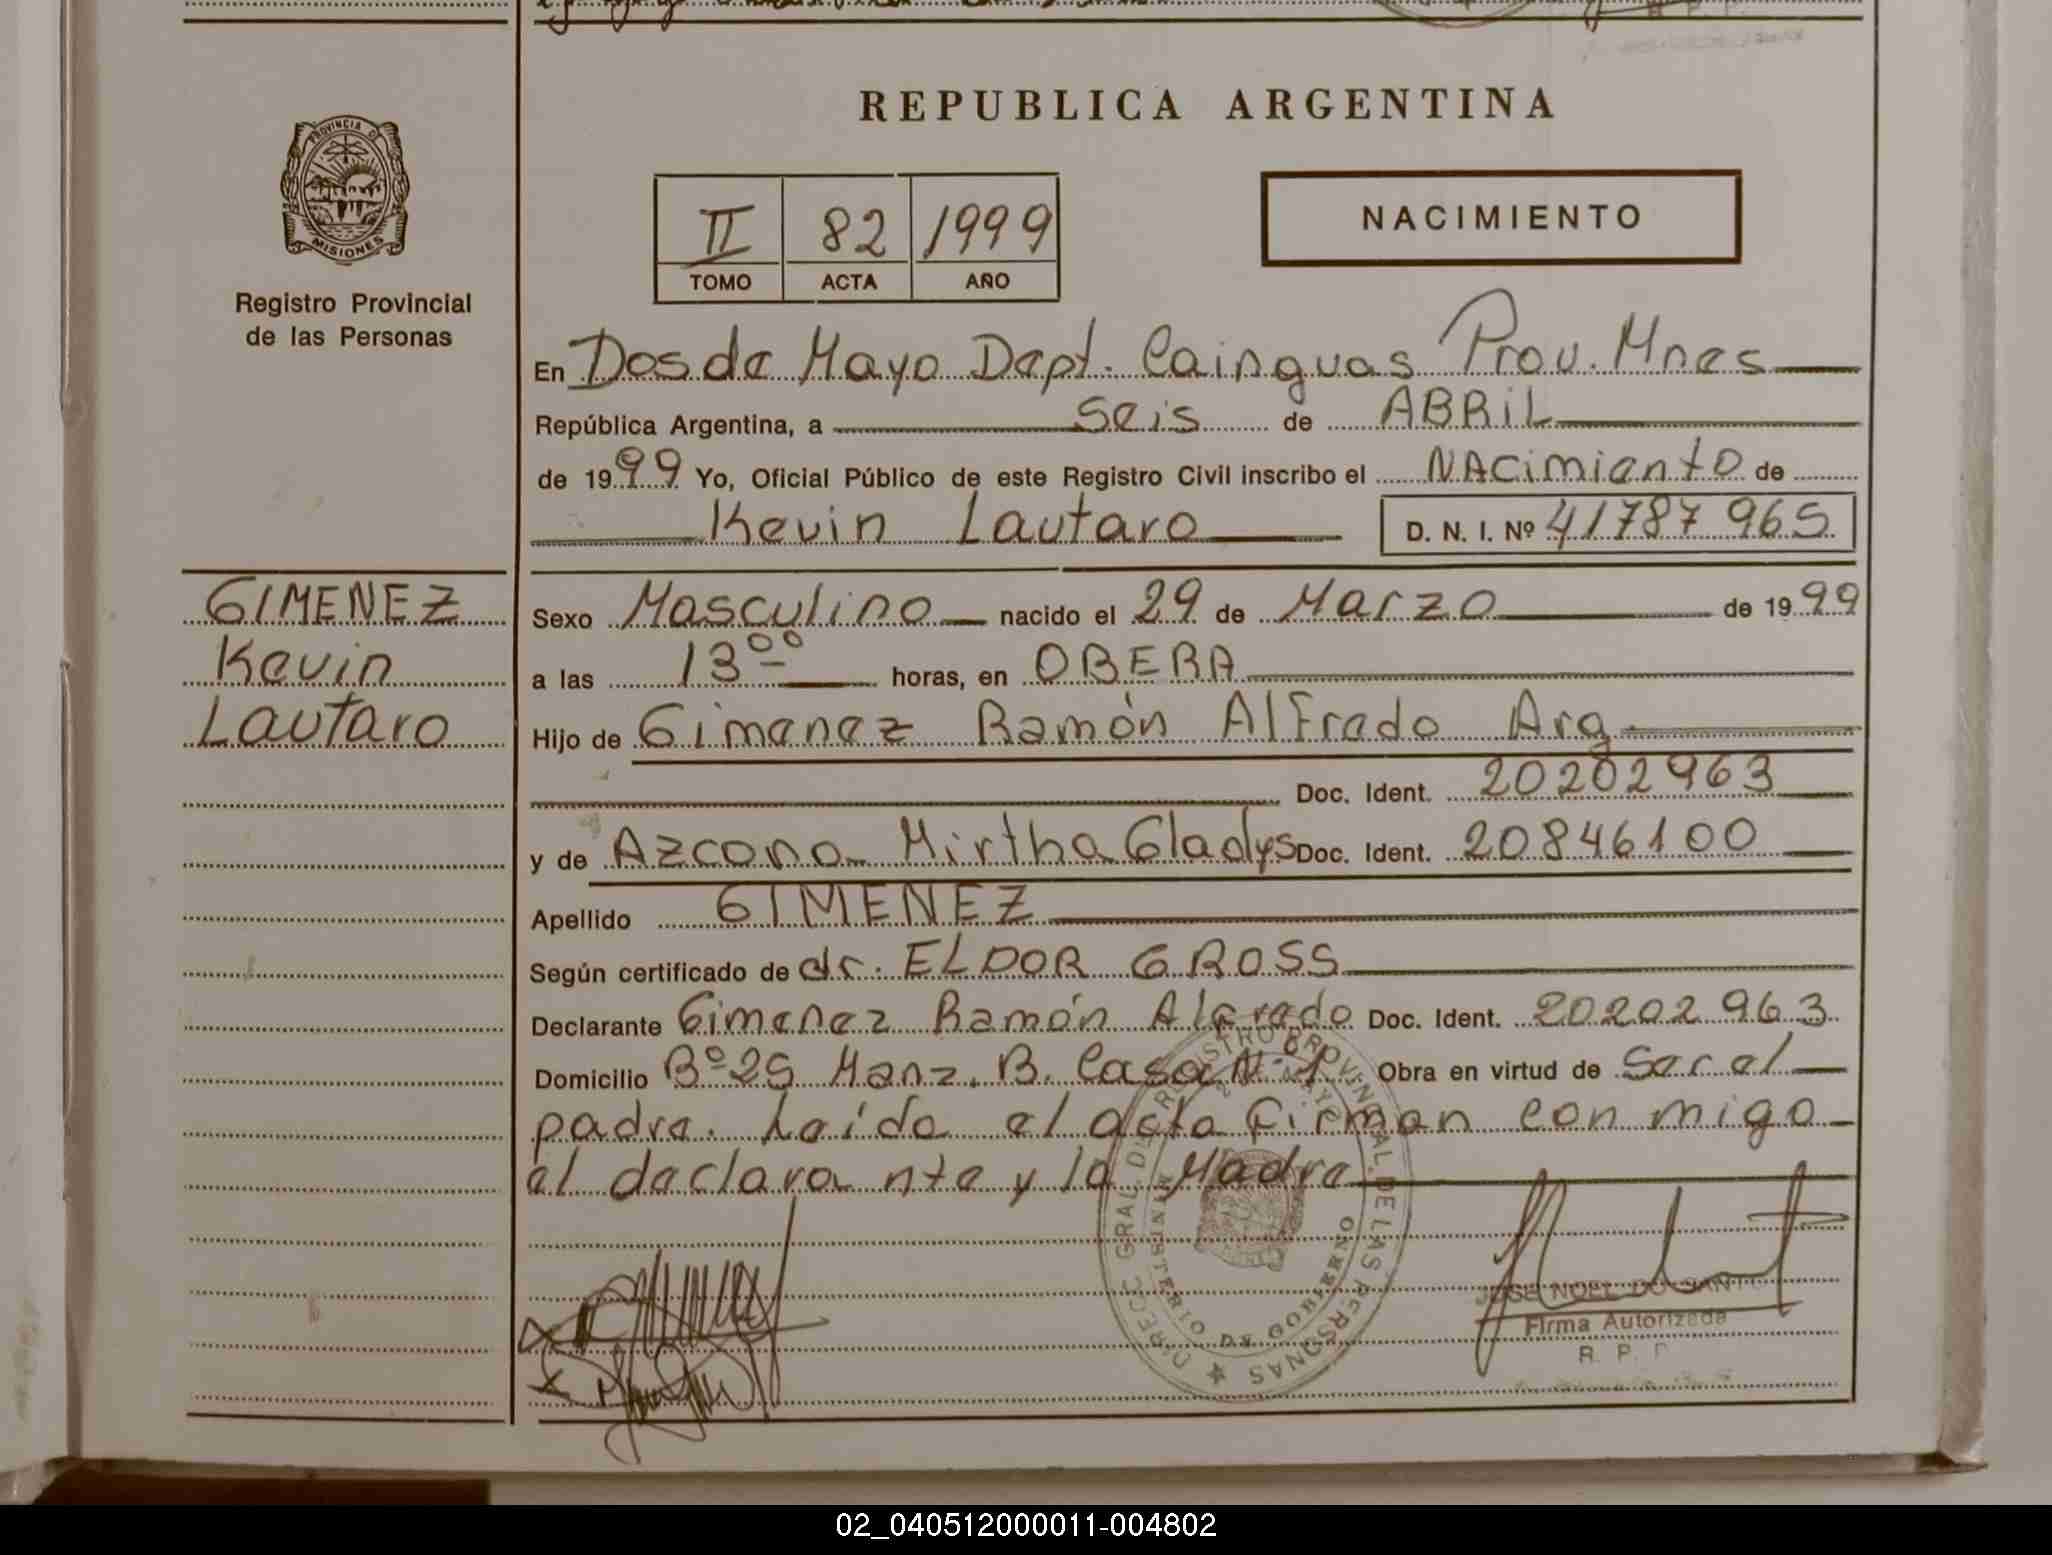 REPUBLICA ARGENTINA
PROVINCIA D
MISIONES
Registro Provincial
de las Personas
II 82 1999
TOMO ACTA AÑO
NACIMIENTO
En Dos de Mayo Dept. Cainguas Prov. Mnes
República Argentina, a seis de ABRIL
de 1999 Yo, Oficial Público de este Registro Civil inscribo el NAcimiento de
Kevin Lautaro D. N. I. Nº 41787965
GIMENEZ
Kevin
Lautaro
Sexo Masculino nacido el 29 de Marzo de 1999
a las 13 00 horas, en OBERA
Hijo de Gimenez Ramón Alfredo Arg
Doc. Ident. 20202963
y de Azcona Mirtha Gladys Doc. Ident. 20846100
Apellido GIMENEZ
Según certificado de dr. ELDOR GROSS
Declarante Gimenez Ramón Alfredo Doc. Ident. 20202963
Domicilio Bº 25 Manz. B. Casa Nº 1 Obra en virtud de ser el
padre. Leída el acta firman con migo
el declara nte y la Madre
DIRECC GRAL DEL REGISTRO PROVINCIAL DE LAS PERSONAS
MINISTERIO DE GOBIERNO
JOSE NOEL DO SANT
Firma Autorizada
R. P. P
02_040512000011-004802